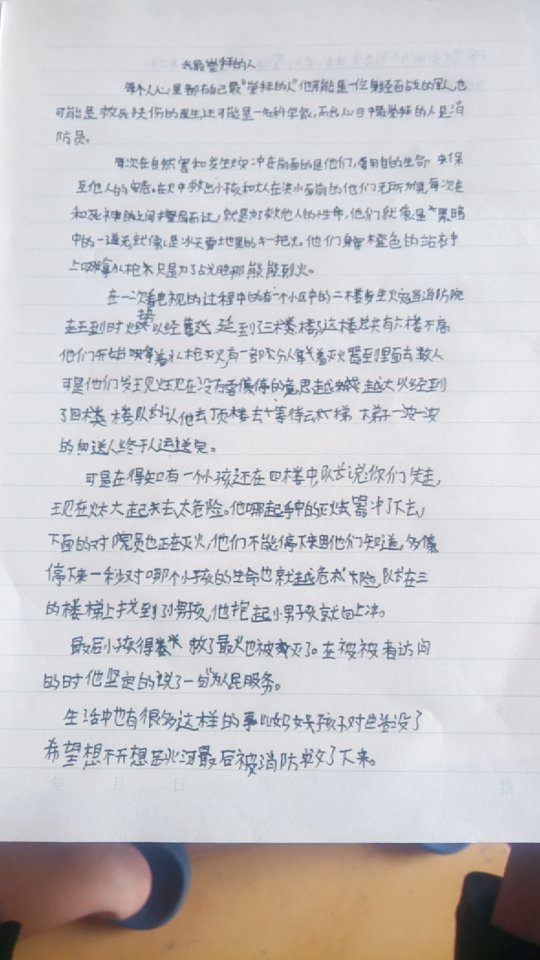 我最崇拜的人
每个人心里都有自己最"崇拜的人"他可能是一位身经百战的军人,也
可能是救死扶伤的医生,还可能是一名科学家,而我心目中最崇拜的人是消
防员。
每次在自然害和发生火灾冲在前面的是他们,用自的生命来保
互他人的安危,在火中救出小孩和大人在洪水面前的他们无所畏惧每次在
和死神的之间擦肩而过,就是为了救他人的生命,他们就像是"黑暗
中的一道光就像是冰天雪地里的一把火,他们身穿橙色的站在手
上拿水枪只是为了战胜那熊熊烈火。
在一次看电视的过程中的有一个小区中的二楼发生火灾当消防院
赶到时火以经蔓延到了三楼楼了这楼总共有六楼不高
他们开始拿着水枪灭火有一部分人拿着灭火器到里面去救人
可是他们发现火现在没有停的意思越越大以经到
了四楼楼队长认他去顶楼去等待云梯梯子一次一次
的向送人终于人运送完。
可是在得知有一个小孩还在四楼中,队长说你们先走,
王现在火大起来去太危险。他哪起手中的灭火器冲了下去,
下面的对院员也正在灭火,他们不能停下来因他们知道,多
停下来一秒对哪个小孩的生命也就越危险,队长在三
的楼梯上找到了小男孩,他抱起小男孩就向上冲。
最后小孩得救了最火也被灭了。在被被者访问
的时他坚定的说了一句"为人民服务。
生活中也有很多这样的事
希望想不开想最后被消防救了下来。
年 月 日 第